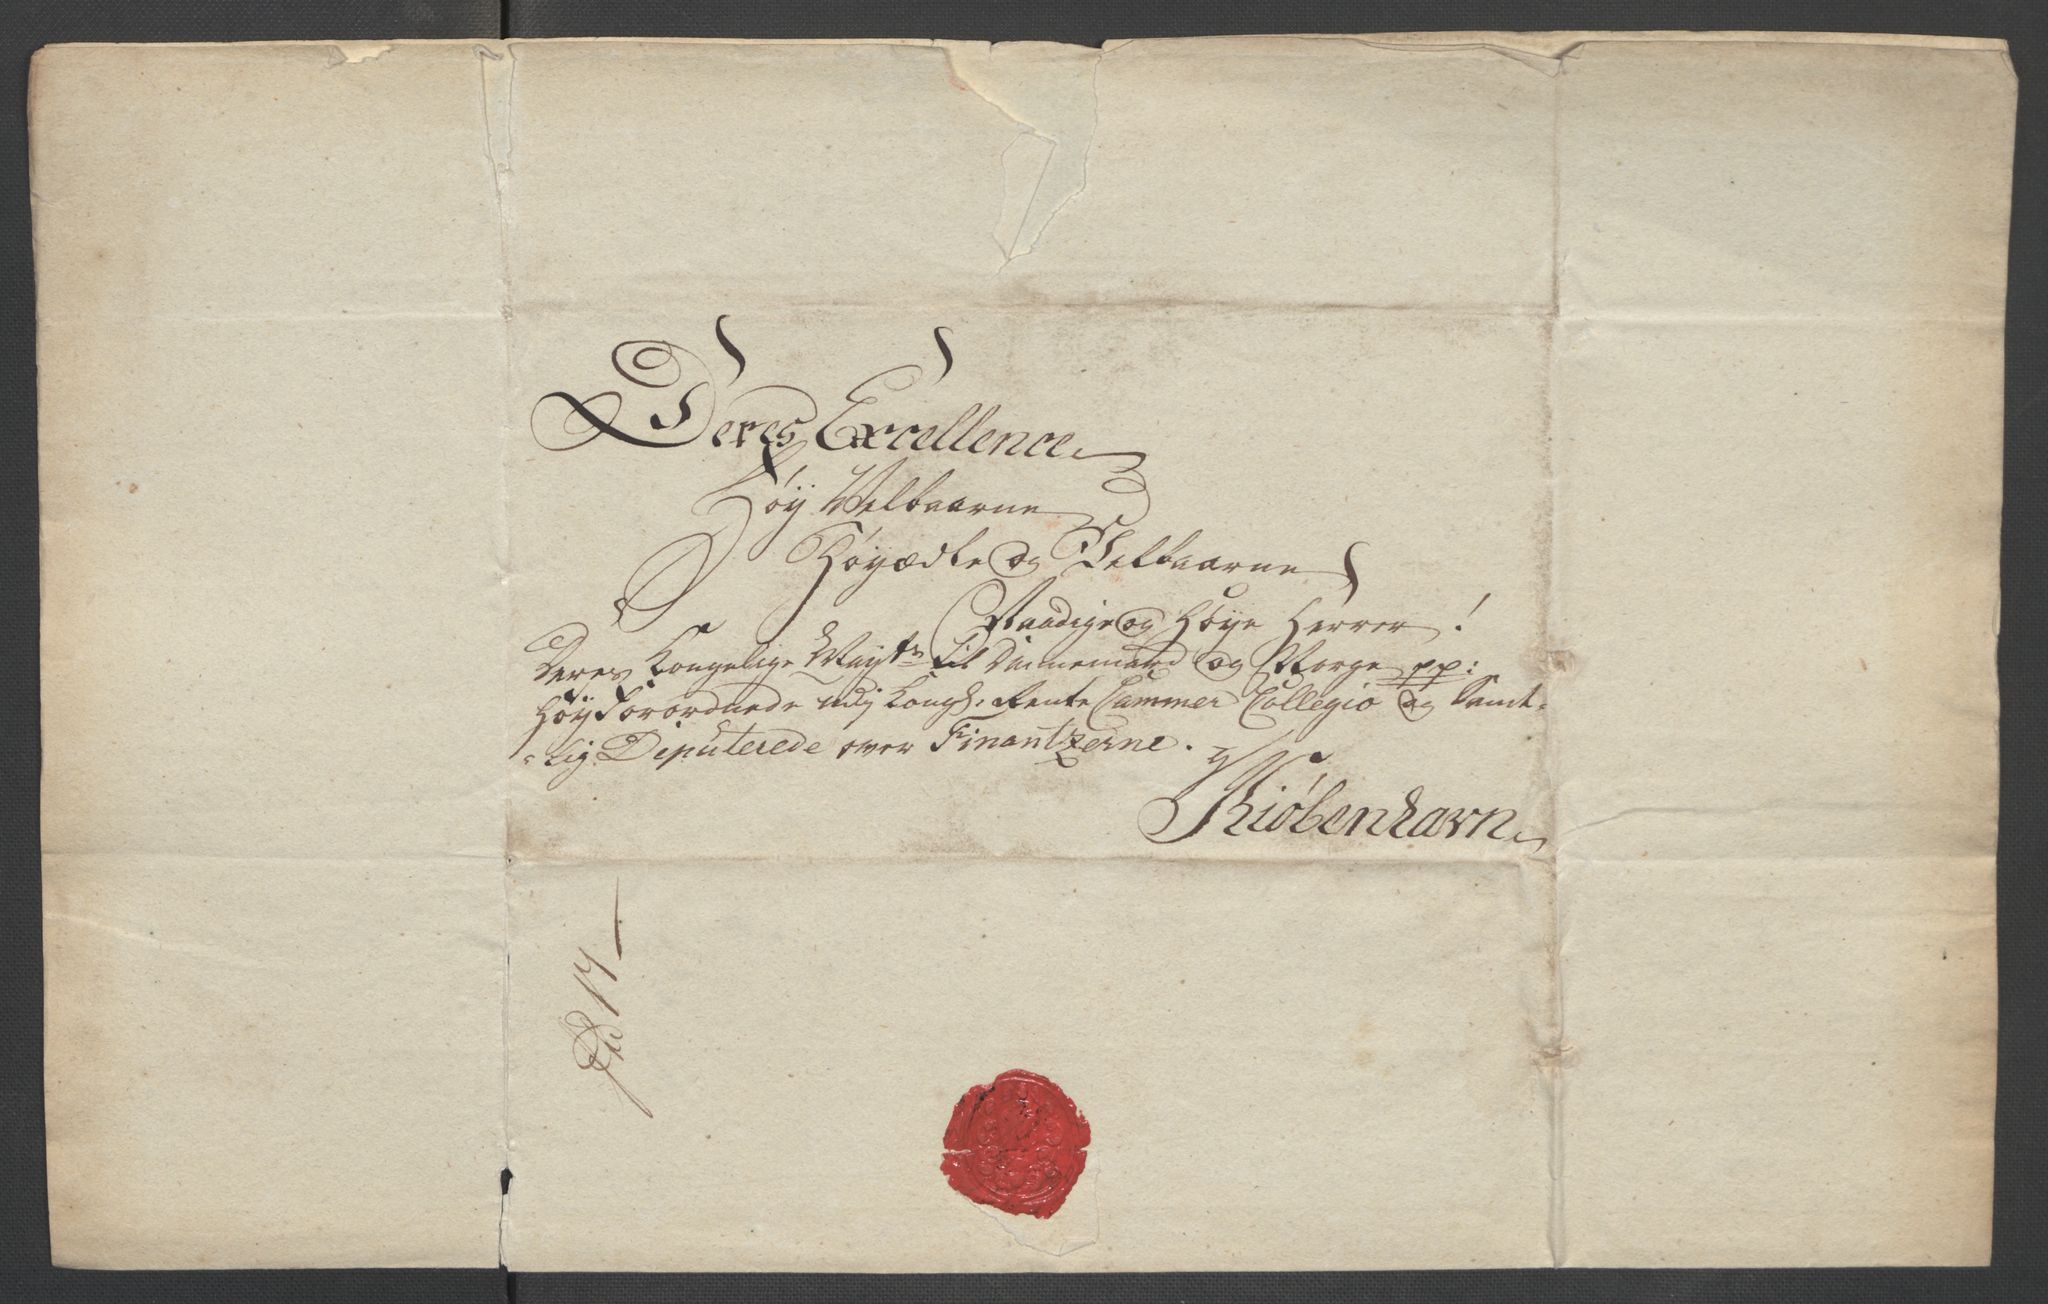 Deres Excellence
Høy Velbaarne
Høyædle og Velbaarne
Naadige og Høye Herrer!
Deres Kongelige Mayts til Dannemarc og Norge pp:
Høy Forordnede udj Kongl. Rente Cammer Collegio og Samt-
-lig Diputerede over Finantzerne.
Kiøbenhavn